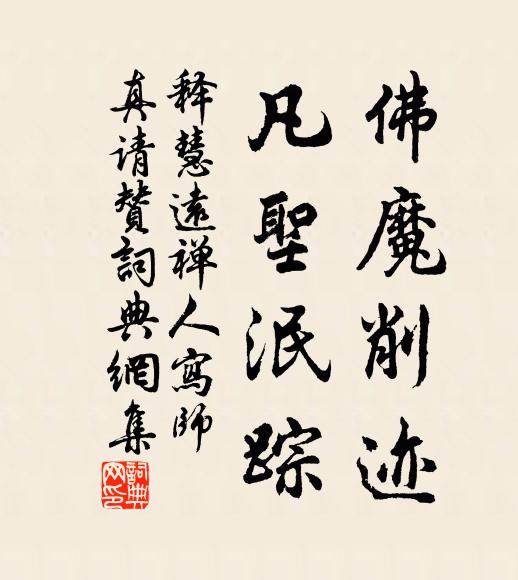 佛魔削迹
凡聖泯踪
释慧遠禅人寫師
真请赞詞典網集
詞典网印